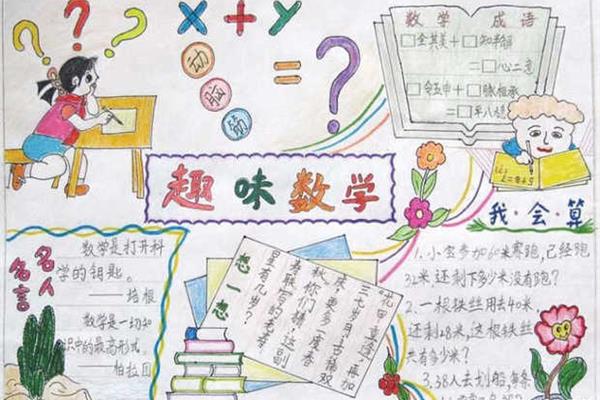 ? ? ?
x + y
= ?
动
脑
筋
数学 成语
□全其美+□知半解
=□心二意
□令五申+□脉相承
=□平八稳
趣味数学
我·会·算
名人
名言
数学是打开科
学的钥匙。
——培根
数学是一切知
识中的最高形式。
——柏拉图
想一想
花甲重逢,再加
三七岁月;古稀双
庆,更多一度春
秋。你们猜,这副
寿联写的老寿
星有几岁?
1.小宝参加60米赛跑,已经跑
32米,还剩下多少米没有跑?
2.一根铁丝用去40米
还剩28米,这根铁丝
共有多少米?
3.38人去划船,每条